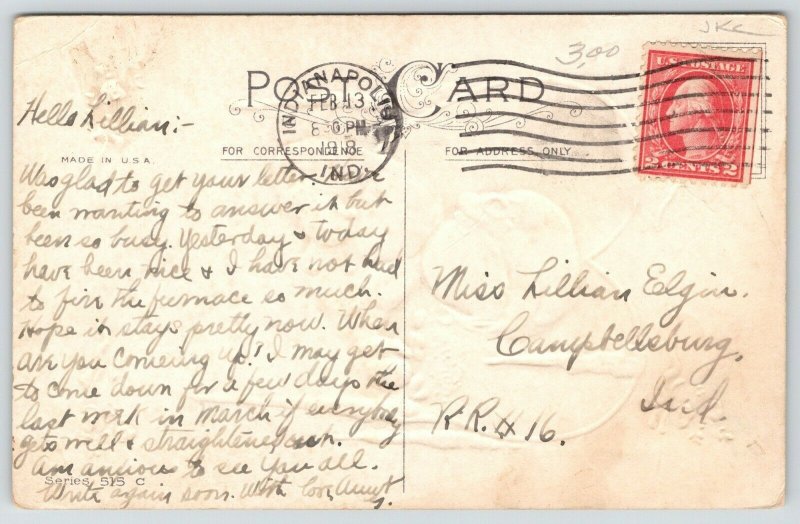 JKC
3.00
POST CARD
INDIANAPOLIS
FEB 13
8 30 PM
1918
IND.
U.S. POSTAGE
2 CENTS 2
Hello Lillian:-
MADE IN U.S.A.
FOR CORRESPONDENCE
FOR ADDRESS ONLY
Was glad to get your letter. Have
been wanting to answer it but
been so busy. Yesterday & today
have been nice & I have not had
to fire the furnace so much.
Hope it stays pretty now. When
are you comeing up? I may get
to come down for a few days the
last week in March if everybody
gets well & straightened out.
Am anxious to see you all.
Series 515 C
Write again soon. With love, Aunt
Miss Lillian Elgin.
Campbellsburg,
Ind.
R.R.# 16.